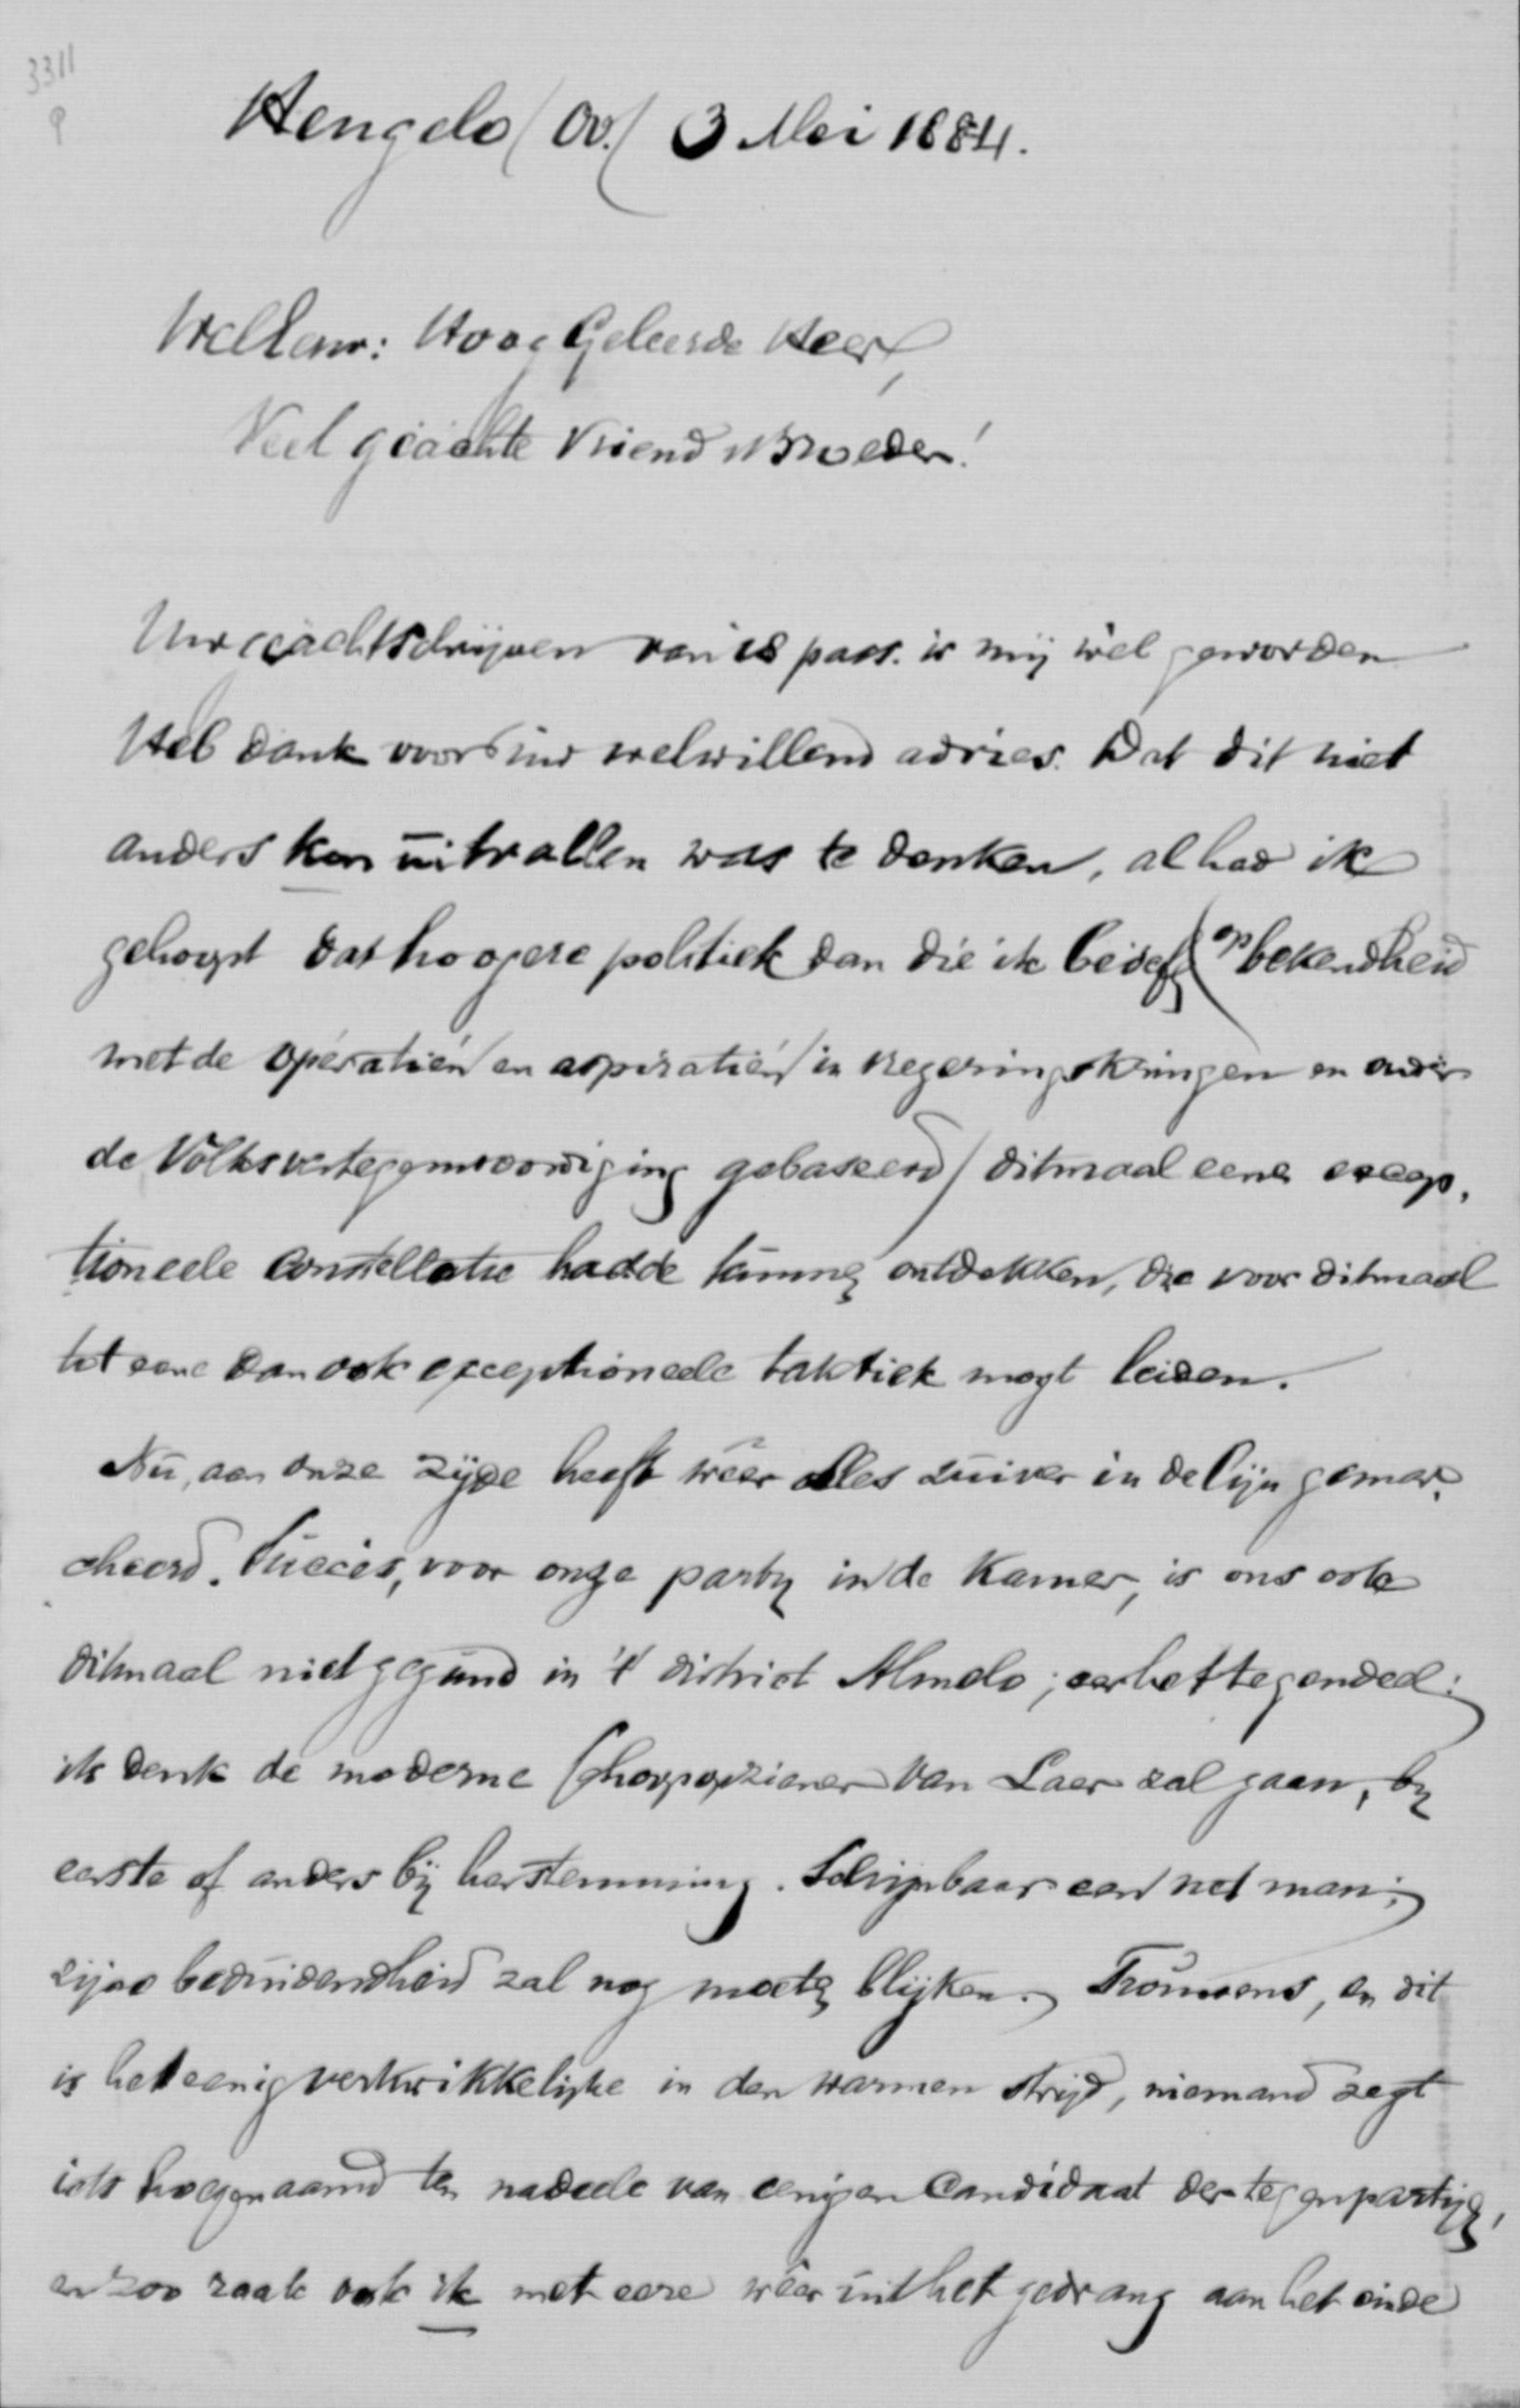 3311
9
Hengelo (Ov.) 3 Mei 1884.
WelEerw: Hoog Geleerde Heer,
Veel geächte Vriend en Broeder!
Uw geächt schrijven van 28 pass. is mij wel geworden
Heb dank voor uw welwillend advies. Dat dit niet
anders kon uitvallen was te denken, al had ik
gehoopt dat hoogere politiek dan die ik beoef (op bekendheid
met de operatiën en aspiratiën in Regeringskringen en onder
de Volksvertegenwoordiging gebaseerd) ditmaal eene excep,
tioneele constellatie hadde kunnen ontdekken, die voor ditmaal
tot eene dan ook exceptioneele taktiek mogt leiden.
Nu, aan onze zijde heeft weer alles zuiver in de lijn gemar,
cheerd. Succes, voor onze partij in de Kamer, is ons ook
ditmaal niet gegund in 't district Almelo; eer het tegendeel:
ik denk de moderne van Laer zal gaan, bij
eerste of anders bij herstemming. Schijnbaar een net man;
zijne beduidendheid zal nog moeten blijken. Trouwens, en dit
is het eenig verkwikkelijke in den warmen strijd, niemand zegt
iets hoegenaamd ten nadeele van eenigen Candidaat der tegenpartijen,
en zoo raak ook ik met eere weer uit het gedrang aan het einde